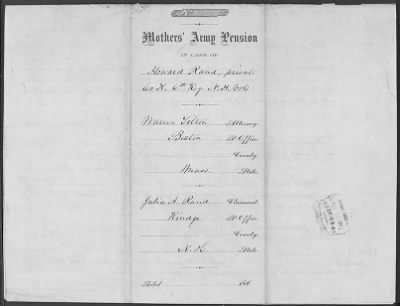 Mothers' Army Pension
IN CASE OF
Howard Rand, private
Co K. 6th Reg. N.H. Vols
Warren Tilton Attorney
Boston P. Office
County
Mass State
Julia A. Rand Claimant
Rindge P. Office
County
N.H. State
Filed 186